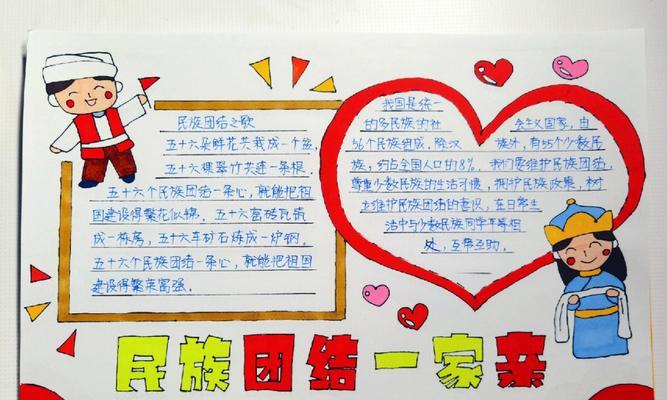 民族团结之歌
五十六朵鲜花共栽成一个盆,
五十六棵翠竹共连一条根.
五十六个民族团结一条心,就能把祖
国建设得繁花似锦. 五十六窑砖瓦铸
成一栋房,五十六车矿石炼成一炉钢.
五十六个民族团结一条心,就能把祖国
建设得繁荣富强.
我国是统一
的多民族的社 会主义国家,由
56个民族组成.除汉 族外,有55个少数民
族,约占全国人口的8%.我们要维护民族团结,
尊重少数民族的生活习惯,拥护民族政策,树
立维护民族团结的意识,在日常生
活中与少数民族同学平等相
处,互帮互助.
民族团结一家亲